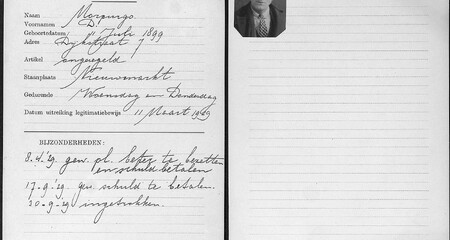 Naam Morpurgo.
Voornamen D.
Geboortedatum / 11 Juli 1899
Adres Dijkstraat 7
Artikel ongeregeld
Standplaats Nieuwmarkt
Gedurende Woensdag en Donderdag
Datum uitreiking legitimatiebewijs 11 Maart 1929
BIJZONDERHEDEN:
8.4.'29. gew. pl. beter te bezetten
en schuld betalen
17-9.'29. gew. schuld te betalen.
20-9-'29 ingetrokken.